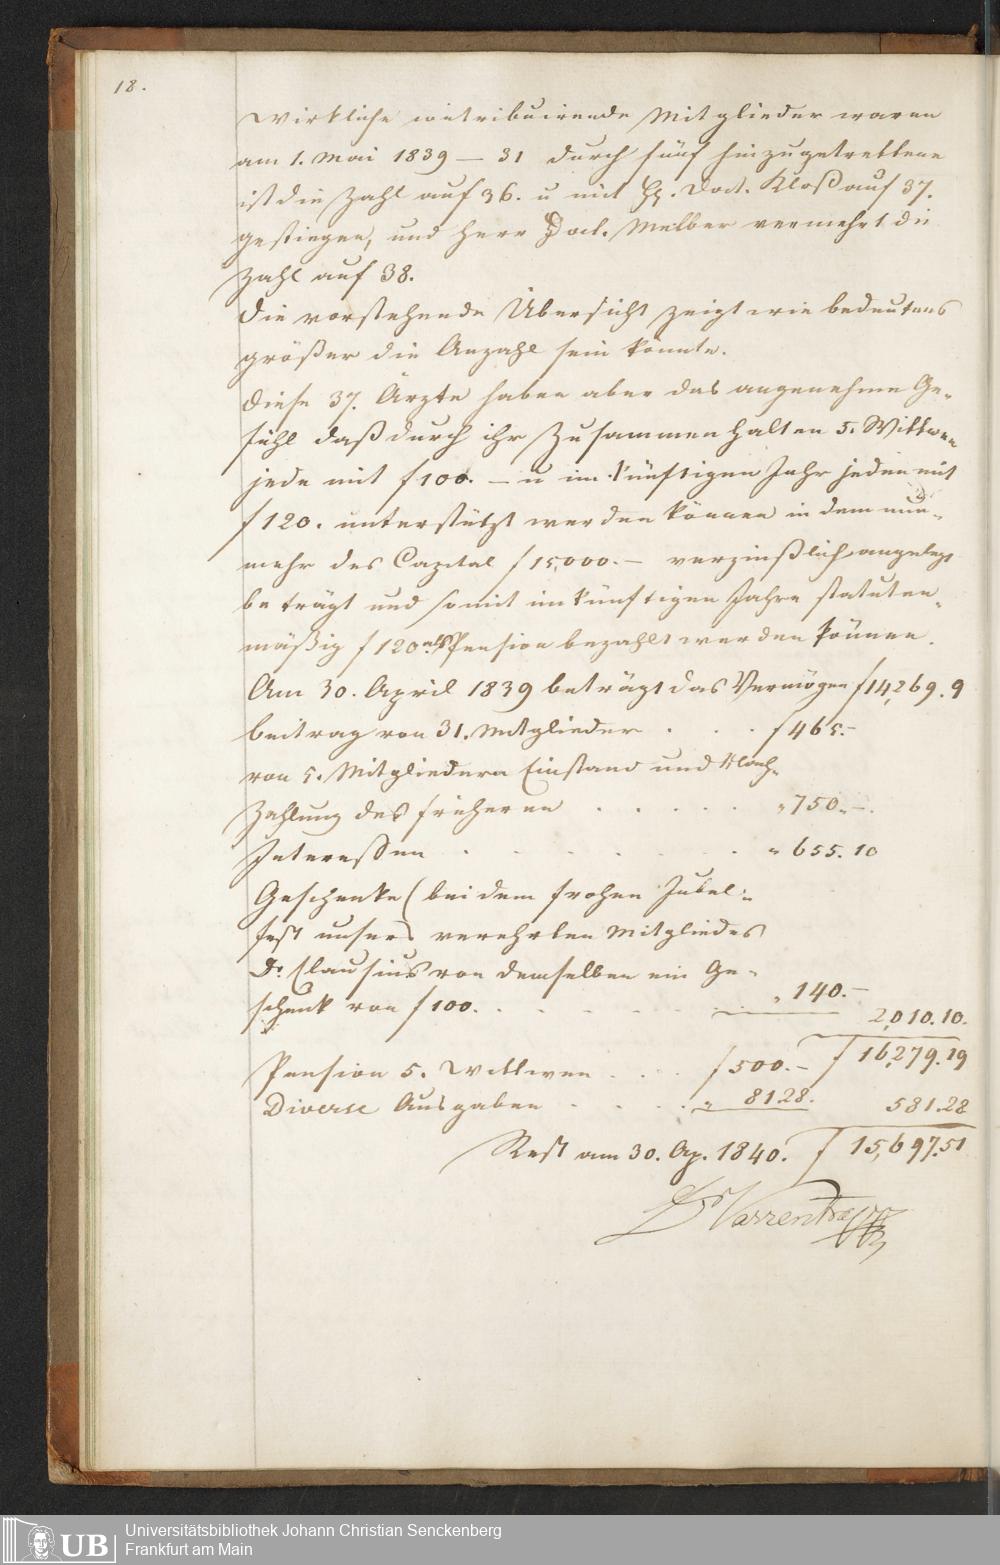 18.
Wirkliche contribuirende Mitglieder waren
am 1. Mai 1839 — 31 durch fünf hinzugetrettene
ist die Zahl auf 36. u mit H. Doct. Kloß auf 37.
gestiegen, und Herr Doct. Melber vermehrt die
Zahl auf 38.
Die vorstehende Übersicht zeigt wie bedeutens
größer die Anzahl sein könnte.
Diese 37. Ärzte haben aber das angenehme Ge-
fühl daß durch ihr Zusammenhalten 5. Wittwen
jede mit f 100. — u im künftigen Jahr jeden mit
f 120. unterstützt werden können in dem nun-
mehr das Capital f 15,000. — verzinßlich angelegt
beträgt und somit im künftigen Jahre statuten-
mäßig f 120 als Pension bezahlt werden können.
Am 30. April 1839 beträgt das Vermögen f 14,269. 9
beitrag von 31. Mitglieder . . . f 465.—
von 5. Mitgliedern Einstand und Nach-
Zahlung des früheren . . . . . „ 750.—.
Interessen . . . . . . . „ 655. 10
Geschenke (bei dem frohen Jubel-
fest unsers verehrten Mitgliedes
Dr. Clausius von demselben ein Ge-
schenk von f 100. . . . . . . „ 140.—
2,010.10.
f 16,279.19
Pension 5. Wittwen . . . . f 500.—
Diverse Ausgaben . . . . „ 81.28. 581.28
Rest am 30. Ap. 1840. f 15,697.51
Dr Varrentrapp
UB Universitätsbibliothek Johann Christian Senckenberg
Frankfurt am Main